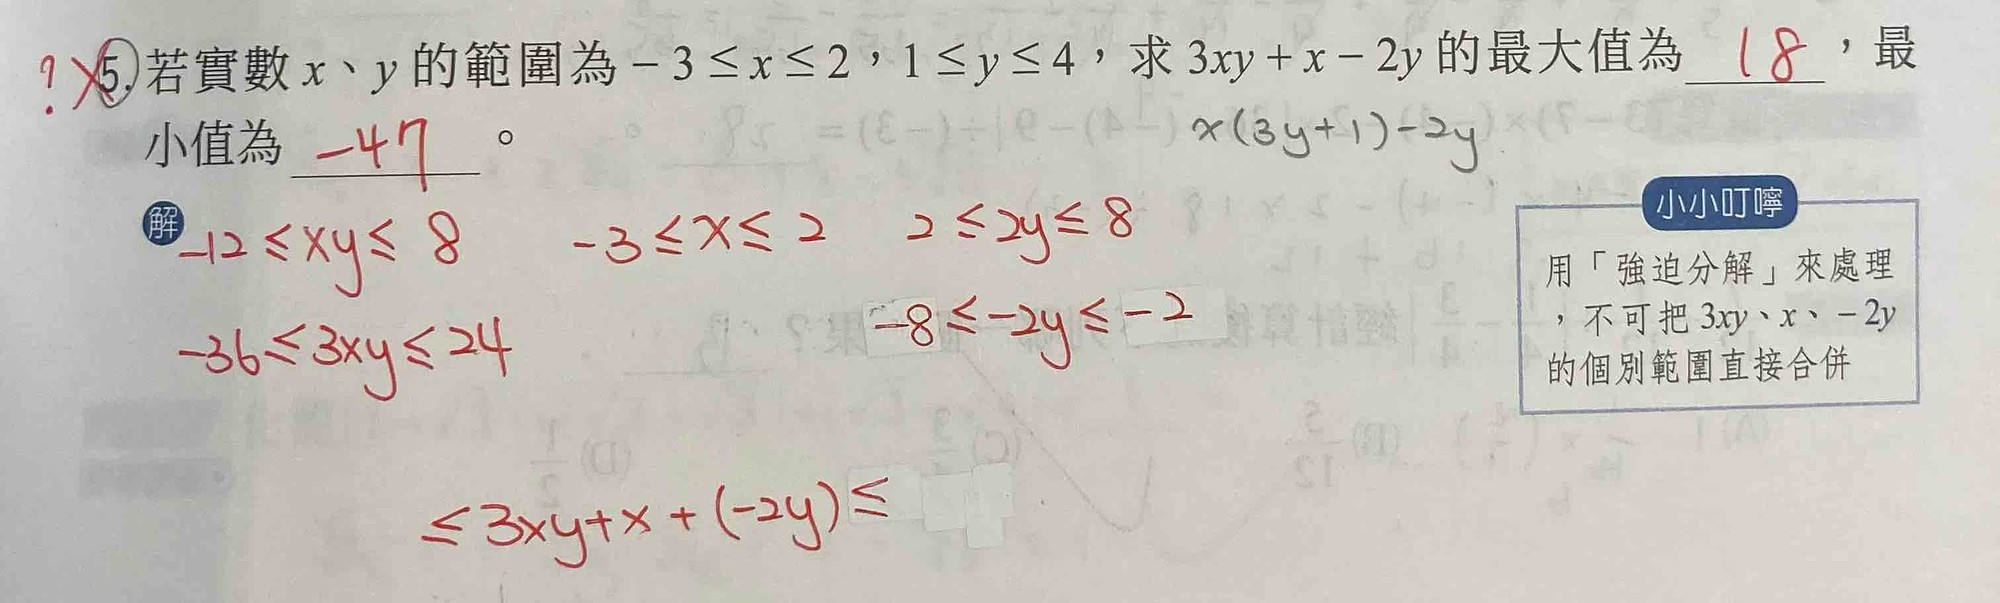 ?×5.若實數 x、y 的範圍為 −3≤x≤2，1≤y≤4，求 3xy+x−2y 的最大值為 18，最
小值為 −47。
x(3y+1)−2y
解 −12≤xy≤8 −3≤x≤2 2≤2y≤8
−36≤3xy≤24 −8≤−2y≤−2
≤3xy+x+(−2y)≤
小小叮嚀
用「強迫分解」來處理
，不可把 3xy、x、−2y
的個別範圍直接合併